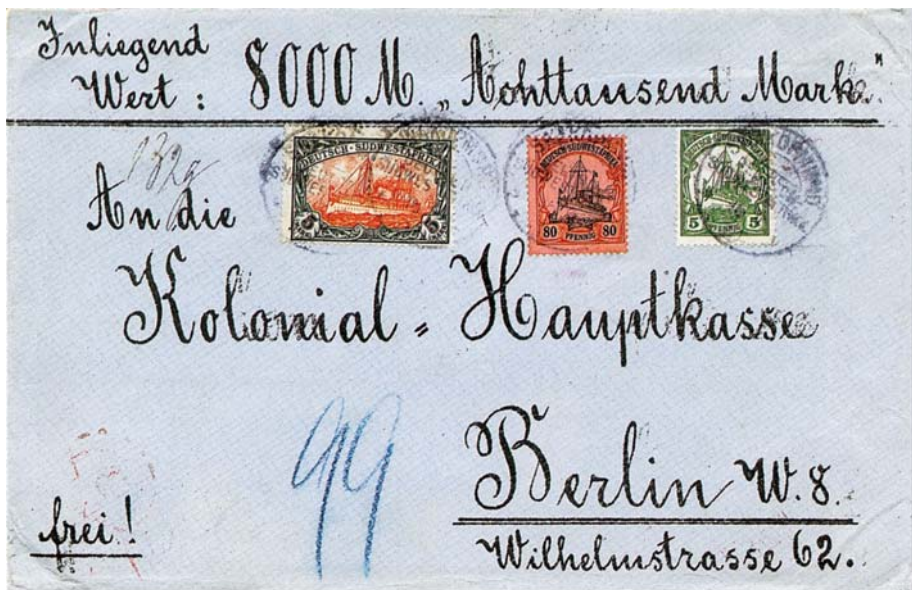 Inliegend
Wert : 8000 M. „Achttausend Mark."
132g
DEUTSCH-SÜDWESTAFRIKA
DEUTSCH-SÜDWESTAFRIKA
80 PFENNIG 80
DEUTSCH-SÜDWESTAFRIKA
5 PFENNIG 5
An die
Kolonial = Hauptkasse
99
Berlin W. 8.
frei !
Wilhelmstrasse 62.